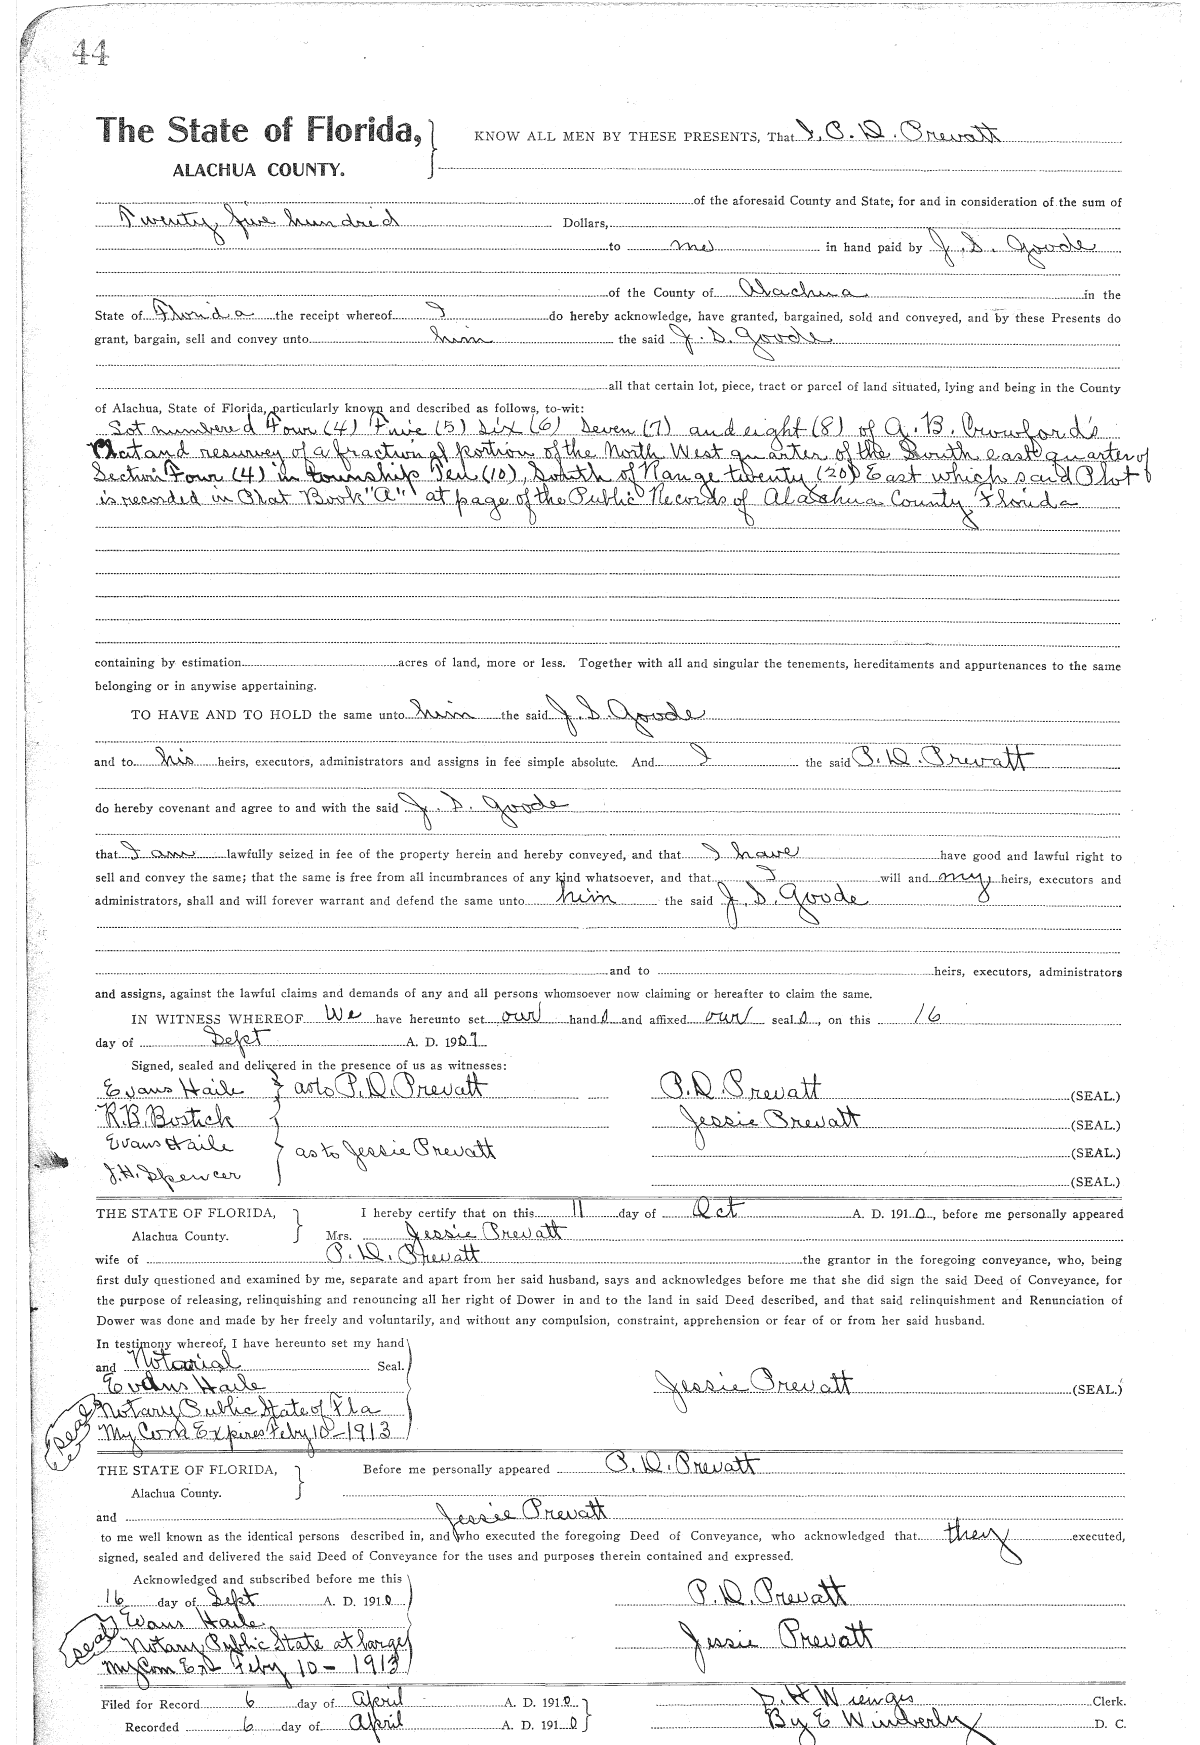 44
The State of Florida, KNOW ALL MEN BY THESE PRESENTS, That I, P. D. Prevatt
ALACHUA COUNTY.
of the aforesaid County and State, for and in consideration of the sum of
Twenty five hundred Dollars,
to me in hand paid by J. S. Goode
of the County of Alachua in the
State of Florida the receipt whereof I do hereby acknowledge, have granted, bargained, sold and conveyed, and by these Presents do
grant, bargain, sell and convey unto him the said J. S. Goode
all that certain lot, piece, tract or parcel of land situated, lying and being in the County
of Alachua, State of Florida, particularly known and described as follows, to-wit:
Lot numbered Four (4) Five (5) Six (6) Seven (7) and eight (8) of G. B. Crowford's
Plat and resurvey of a fractional portion of the North West quarter of the South east quarter of
Section Four (4) in township Ten (10), South of Range twenty (20) East which said Plot
is recorded in Plat Book "A" at page of the Public Records of Alachua County Florida
containing by estimation acres of land, more or less. Together with all and singular the tenements, hereditaments and appurtenances to the same
belonging or in anywise appertaining.
TO HAVE AND TO HOLD the same unto him the said J. S. Goode
and to his heirs, executors, administrators and assigns in fee simple absolute. And I the said P. D. Prevatt
do hereby covenant and agree to and with the said J. S. Goode
that I am lawfully seized in fee of the property herein and hereby conveyed, and that I have have good and lawful right to
sell and convey the same; that the same is free from all incumbrances of any kind whatsoever, and that I will and my heirs, executors and
administrators, shall and will forever warrant and defend the same unto him the said J. S. Goode
and to heirs, executors, administrators
and assigns, against the lawful claims and demands of any and all persons whomsoever now claiming or hereafter to claim the same.
IN WITNESS WHEREOF We have hereunto set our hands and affixed our seals, on this 16
day of Sept A. D. 1909.
Signed, sealed and delivered in the presence of us as witnesses:
Evans Haile } as to P. D. Prevatt P. D. Prevatt (SEAL.)
R. B. Bostick Jessie Prevatt (SEAL.)
Evans Haile } as to Jessie Prevatt (SEAL.)
J. H. Spencer (SEAL.)
THE STATE OF FLORIDA, I hereby certify that on this 11 day of Oct A. D. 1910, before me personally appeared
Alachua County. Mrs. Jessie Prevatt
wife of P. D. Prevatt the grantor in the foregoing conveyance, who, being
first duly questioned and examined by me, separate and apart from her said husband, says and acknowledges before me that she did sign the said Deed of Conveyance, for
the purpose of releasing, relinquishing and renouncing all her right of Dower in and to the land in said Deed described, and that said relinquishment and Renunciation of
Dower was done and made by her freely and voluntarily, and without any compulsion, constraint, apprehension or fear of or from her said husband.
In testimony whereof, I have hereunto set my hand
and Notarial Seal.
Evans Haile Jessie Prevatt (SEAL.)
seal Notary Public State of Fla
My Com Expires Feby 10-1913
THE STATE OF FLORIDA, Before me personally appeared P. D. Prevatt
Alachua County.
and Jessie Prevatt
to me well known as the identical persons described in, and who executed the foregoing Deed of Conveyance, who acknowledged that they executed,
signed, sealed and delivered the said Deed of Conveyance for the uses and purposes therein contained and expressed.
Acknowledged and subscribed before me this
16 day of Sept A. D. 1910 P. D. Prevatt
Evans Haile
seal Notary Public State at large Jessie Prevatt
My Com Ex Feby 10-1913
Filed for Record 6 day of April A. D. 1910 S. H Wienges Clerk.
Recorded 6 day of April A. D. 1910 By E Wimberly D. C.